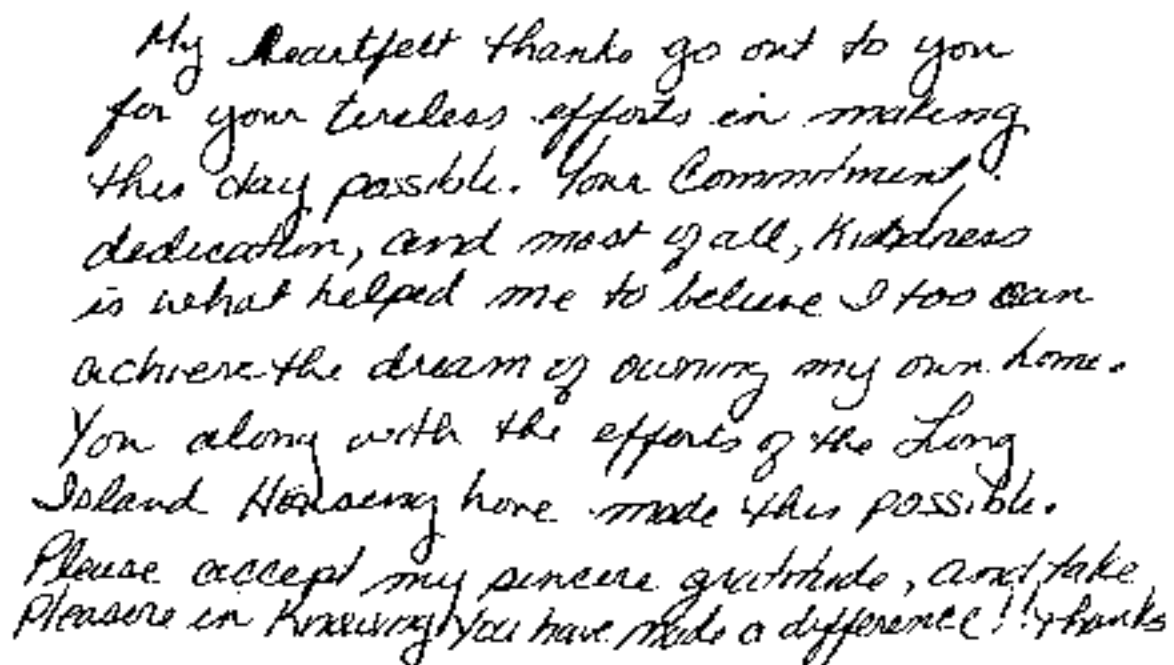 My heartfelt thanks go out to you
for your tireless efforts in making
this day possible. Your Commitment,
dedication, and most of all, Kindness
is what helped me to believe I too can
achieve the dream of owning my own home.
You along with the efforts of the Long
Island Housing have made this possible.
Please accept my sincere gratitude, and take
Pleasure in Knowing You have made a difference!! Thanks